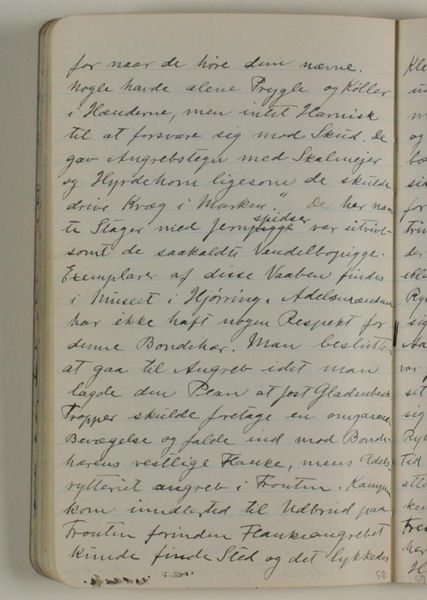 for naar de höre dem nævne.
Nogle havde alene Prygle og Köller
i Hænderne, men intet Harnisk
til at forsvare sig mod Skud. De
gav Angrebstegn med Skalmejer
og Hyrdehorn ligesom de skulde
drive Kvæg i Marken." De her næv
te Stager med Jernpigge spidser var utvivl-
somt de saakaldte Vendelbopigge.
Exemplarer af disse Vaaben findes
i Museet i Hjörring. Adelsmændene
har ikke haft nogen Respekt for
denne Bondehær. Man besluttede
at gaa til Angreb idet man
lagde den Plan at Jost
Tropper skulde foretage en omgaaende
Bevægelse og falde ind mod Bonde-
hærens vestlige Flanke, mens Adels-
rytteriet angreb i Fronten. Kampen
kom imidlertid til Udbrud paa
Fronten forinden Flankeangrebet
kunde finde Sted og det lykkedes